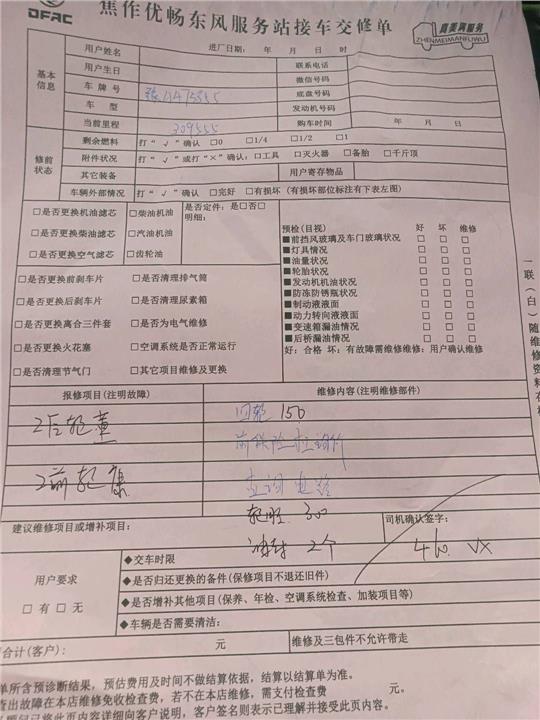 DFAC
焦作优畅东风服务站接车交修单
真美满服务
ZHENMEIMANFUWU
用户姓名 进厂日期: 年 月 日 时
基本信息
用户生日 联系电话
微信号码
车 牌 号 底盘号码
车 型 发动机号码
当前里程 209555 购车时间 年 月 日
修前状态
剩余燃料 打“√”确认 □0 □1/4 □1/2 □1
附件状况 打“√”或打“×”确认: □工具 □灭火器 □备胎 □千斤顶
其它装备 用户寄存物品
车辆外部情况 打“√”确认 □完好 □有损坏 (有损坏部位标注有下表左图)
□是否更换机油滤芯 □柴油机油 是否定件: 是□否□
明细:
□是否更换柴油滤芯 □汽油机油
□是否更换空气滤芯 □齿轮油
预检(目视) 好 坏 维修
■前挡风玻璃及车门玻璃状况 □ □ □
■灯具情况 □ □ □
■油量状况 □ □ □
■轮胎状况 □ □ □
■发动机机油状况 □ □ □
■防冻防锈瓶状况 □ □ □
■制动液液面 □ □ □
■动力转向液液面 □ □ □
■变速箱漏油情况 □ □ □
■后桥漏油情况 □ □ □
好: 合格 坏: 有故障需维修维修: 用户确认维修
□是否更换前刹车片 □是否清理排气筒
□是否更换后刹车片 □是否清理尿素箱
□是否更换离合三件套 □是否为电气维修
□是否更换火花塞 □空调系统是否正常运行
□是否清理节气门 □其它项目维修及更换
一联(白)随维修资料存档
报修项目(注明故障) 维修内容(注明维修部件)
150
查询电路
300
2个
建议维修项目或增补项目:
司机确认签字:
用户要求
□ 有 □ 无
◆交车时限
◆是否归还更换的备件(保修项目不退还旧件)
◆是否增补其他项目(保养、年检、空调系统检查、加装项目等)
◆车辆是否需要清洁:
合计(客户): 元 维修及三包件不允许带走
单所含预诊断结果, 预估费用及时间不做结算依据, 结算以结算单为准。
查出故障在本店维修免收检查费, 若不在本店维修, 需支付检查费 元。
顾问已将此页内容详细向客户说明, 客户签名则表示已理解并接受此页内容。